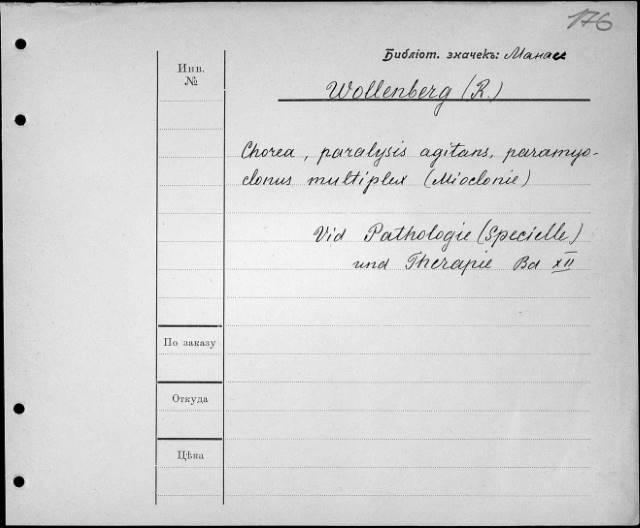 176
Библіот. значекъ: Манасс
Инв.
№
Wollenberg (R.)
Chorea, paralysis agitans, paramyo-
clonus multiplex (Mioclonie)
Vid Pathologie (Specielle)
und Therapie Bd XII
По заказу
Откуда
Цѣна